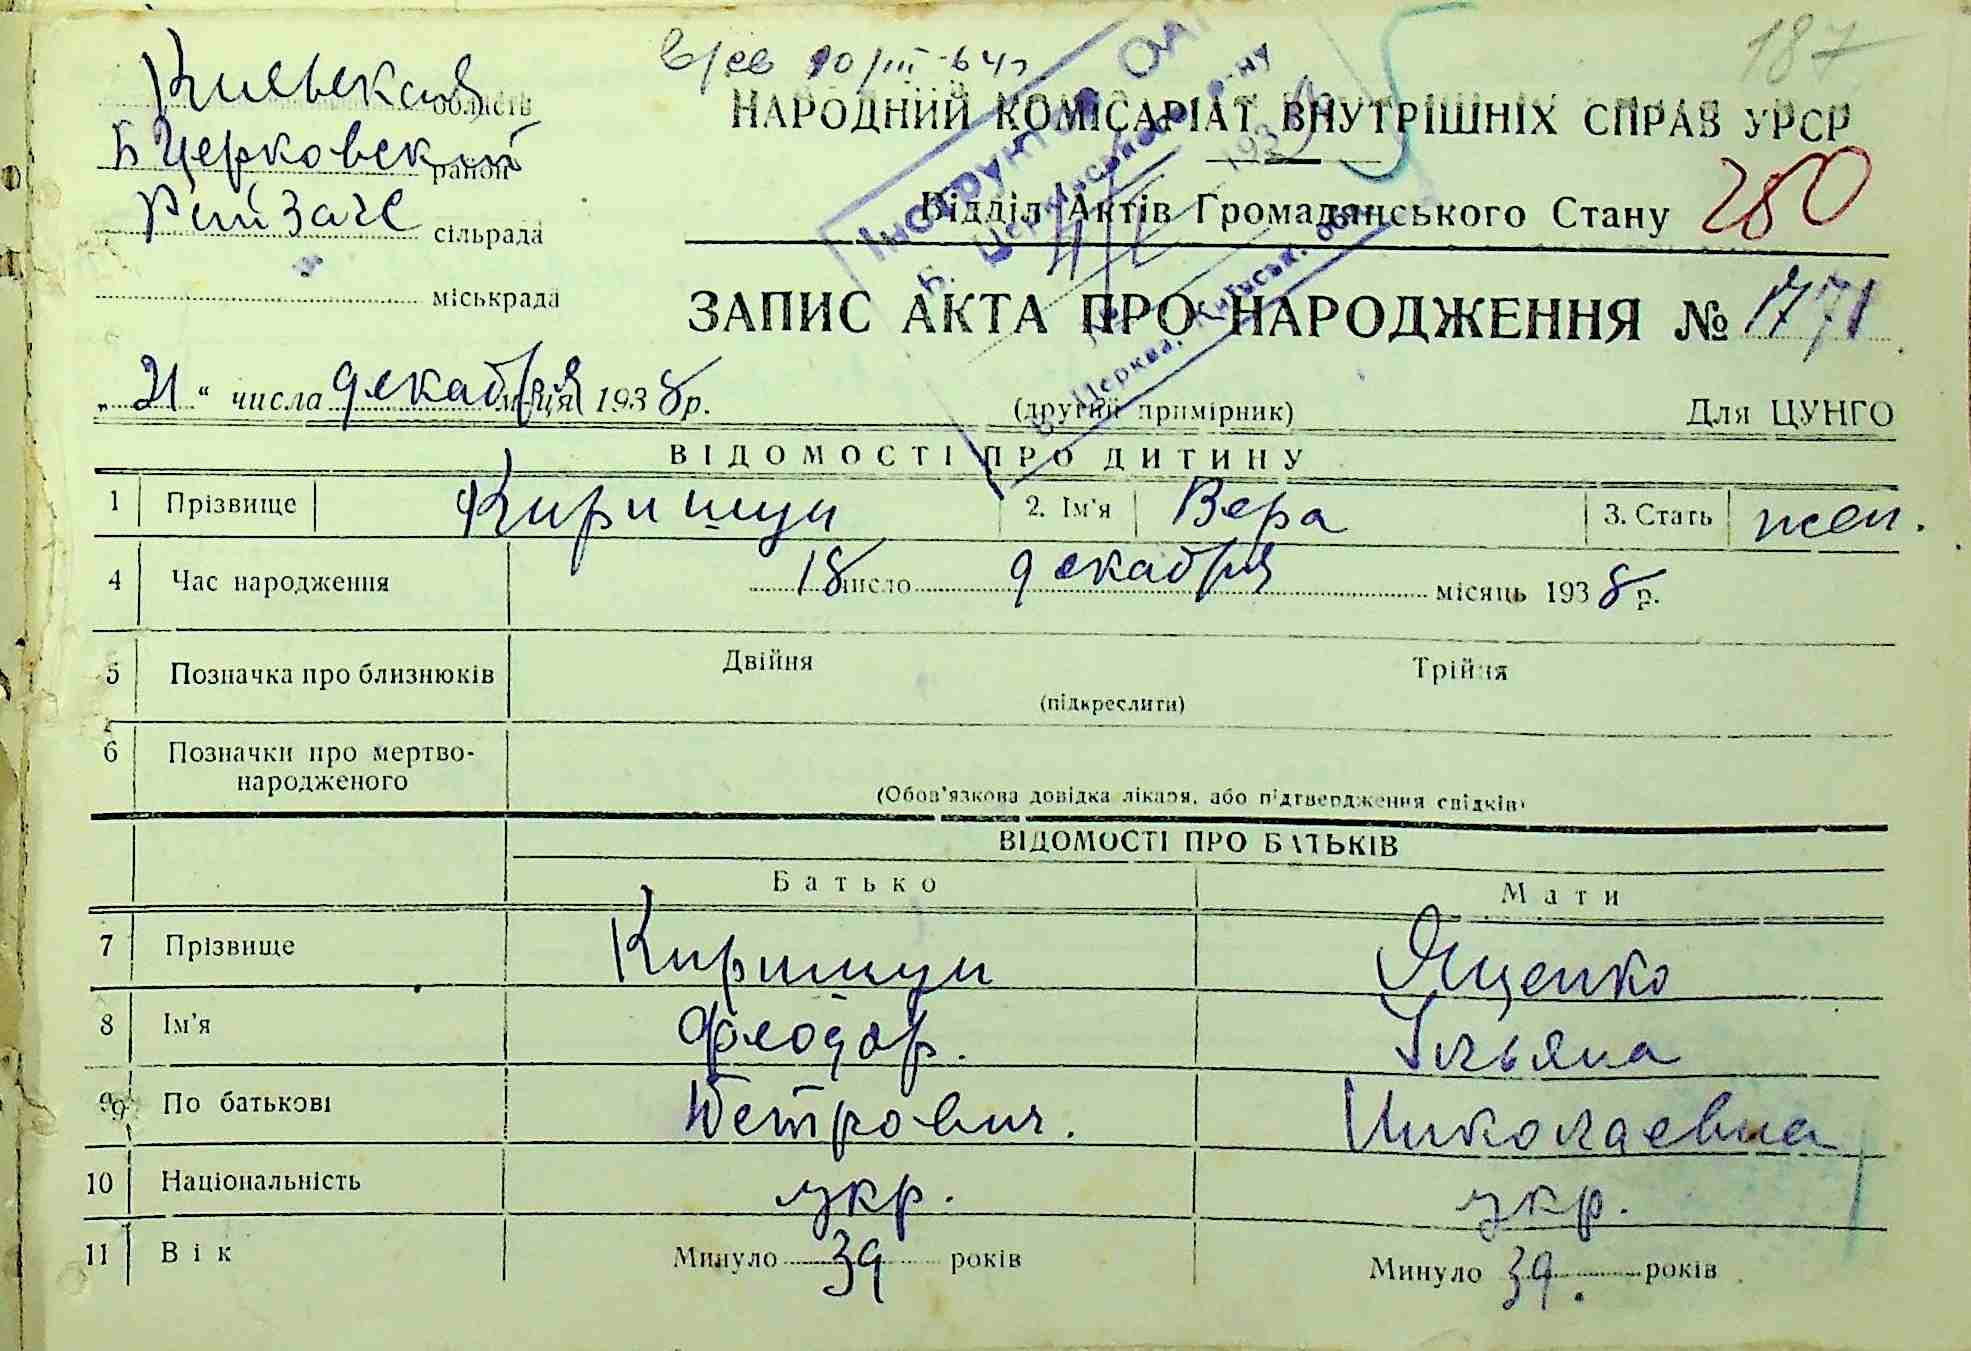 187
в/св 10/III-64г
Киевская область
Б Церковский район
сільрада
міськрада
НАРОДНИЙ КОМІСАРІАТ ВНУТРІШНІХ СПРАВ УРСР
Відділ Актів Громадянського Стану 280
ЗАПИС АКТА ПРО НАРОДЖЕННЯ № 1771
„21“ числа декабря м-ця 1938 р.
(другий примірник) Для ЦУНГО
ВІДОМОСТІ ПРО ДИТИНУ
1 Прізвище Киришун 2. Ім'я Вера 3. Стать жен.
4 Час народження 18 число декабря місяць 1938 р.
5 Позначка про близнюків Двійня Трійня
(підкреслити)
6 Позначки про мертво-
народженого
(Обов'язкова довідка лікаря, або підтвердження свідків)
ВІДОМОСТІ ПРО БАТЬКІВ
Батько Мати
7 Прізвище Киришун Ященко
8 Ім'я Феодор. Ульяна
9 По батькові Петрович. Николаевна
10 Національність укр. укр.
11 Вік Минуло 39 років Минуло 39 років